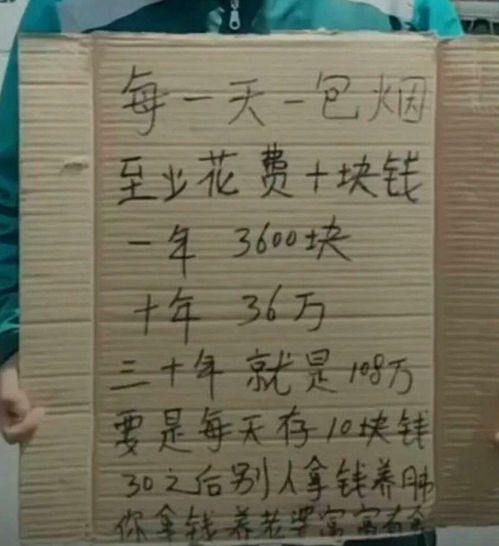 每一天一包烟
至少花费十块钱
一年 3600块
十年 36万
三十年 就是 108万
要是每天存10块钱
30之后别人拿钱养肺
你拿钱养老婆富富有余